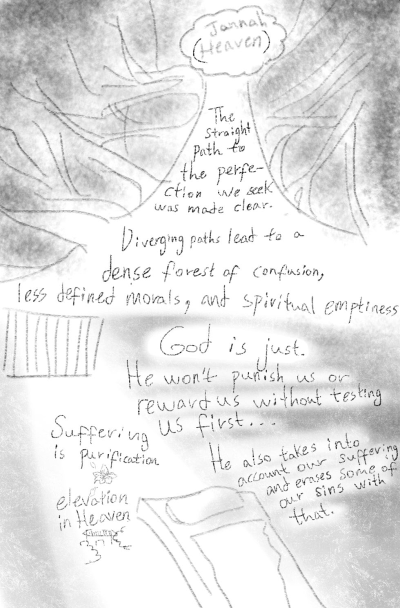 Jannah
(Heaven)
The
straight
path to
the perfe-
ction we seek
was made clear.
Diverging paths lead to a
dense forest of confusion,
less defined morals, and spiritual emptiness
God is just.
He won't punish us or
reward us without testing
us first...
Suffering
is purification
elevation
in Heaven
He also takes into
account our suffering
and erases some of
our sins with
that.